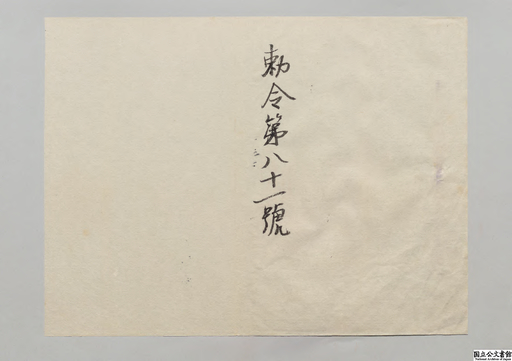 勅令第八十一號
国立公文書館
National Archives of Japan